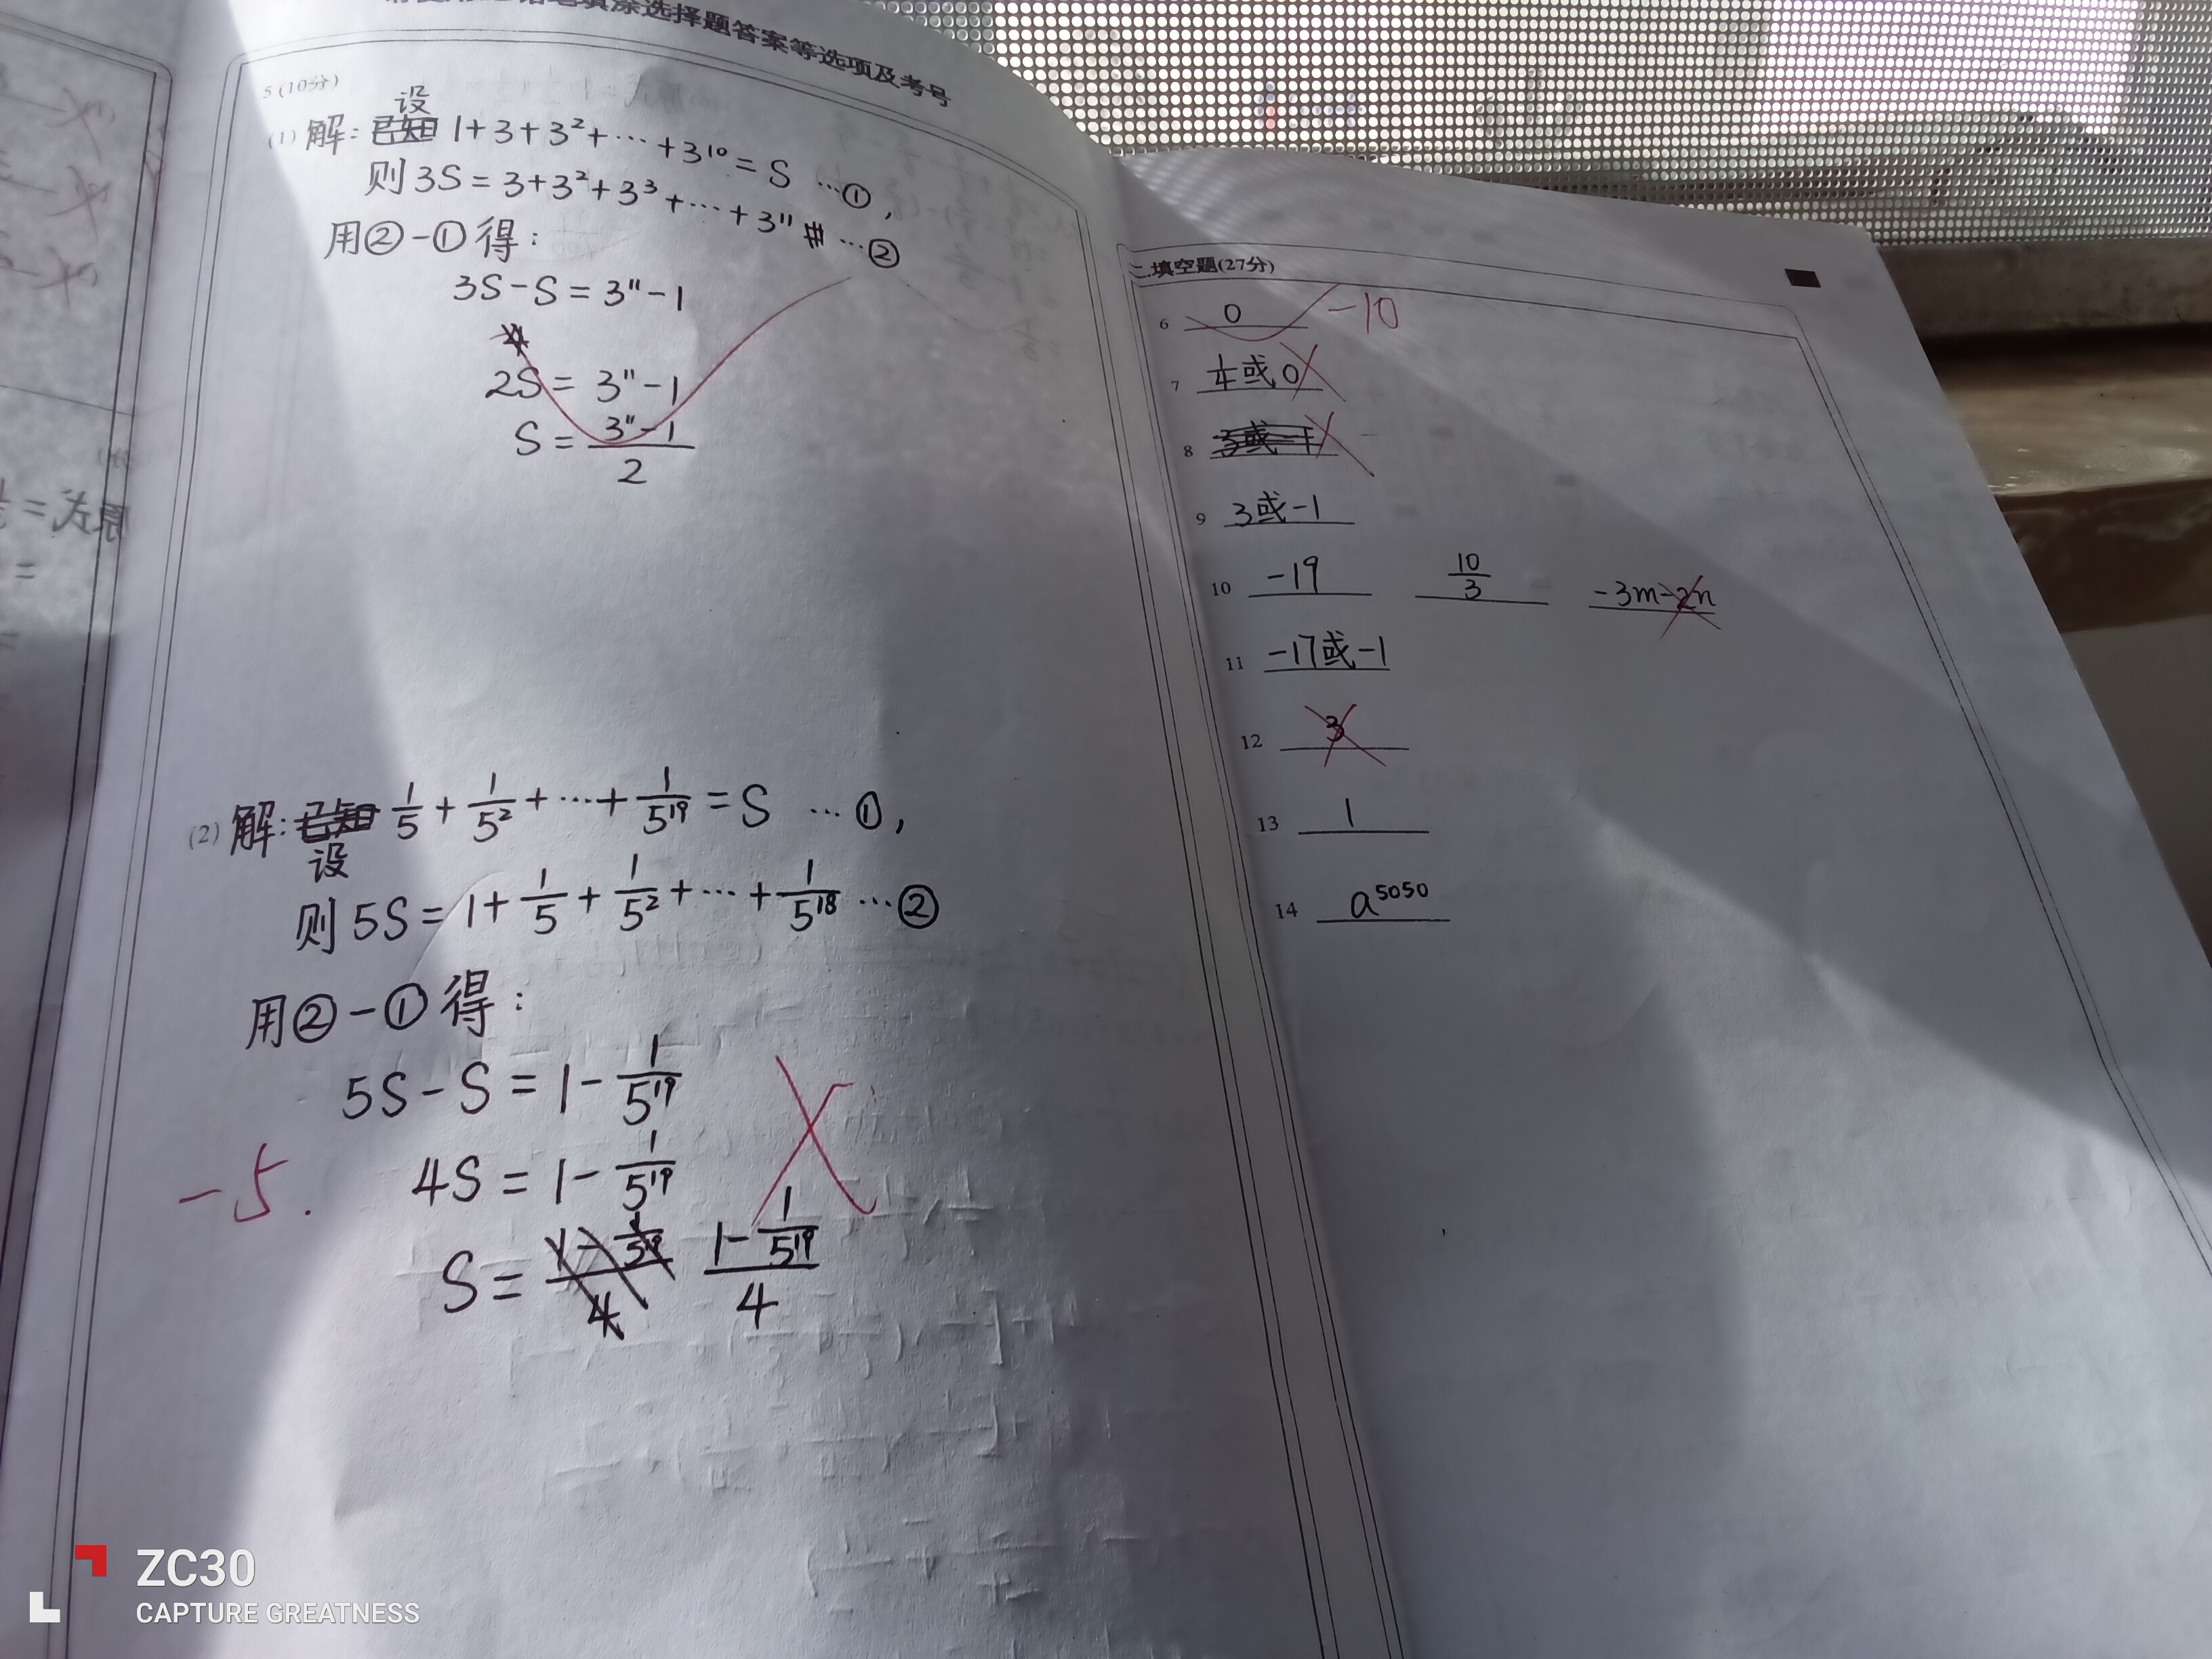 填涂选择题答案等选项及考号
5 (10分)
设
(1) 解: 已知 1+3+3²+…+3¹⁰=S …①,
则3S=3+3²+3³+…+3¹¹ …②
用②-①得:
3S-S=3¹¹-1
2S=3¹¹-1
S=(3¹¹-1)/2
(2) 解: 已知 1/5+1/5²+…+1/5¹⁹=S …①,
设
则5S=1+1/5+1/5²+…+1/5¹⁸…②
用②-①得:
5S-S=1-1/5¹⁹
4S=1-1/5¹⁹
-5.
S=(1-1/5¹⁹)/4 (1-1/5¹⁹)/4
二.填空题(27分)
6 0 -10
7 1/4或0
8 3或-1
9 3或-1
10 -19 10/3 -3m-2n
11 -17或-1
12 3
13 1
14 a⁵⁰⁵⁰
原式=
=
ZC30
CAPTURE GREATNESS